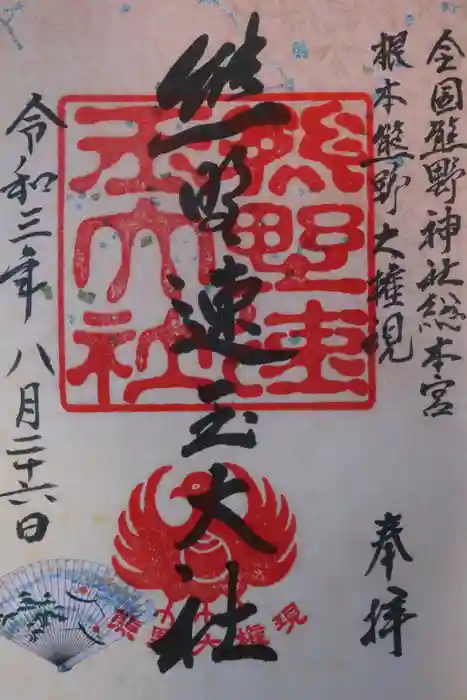 全国熊野神社総本宮
根本熊野大権現
奉拝
熊野速玉大社
熊野速玉大社
熊野大権現
令和三年八月二十六日